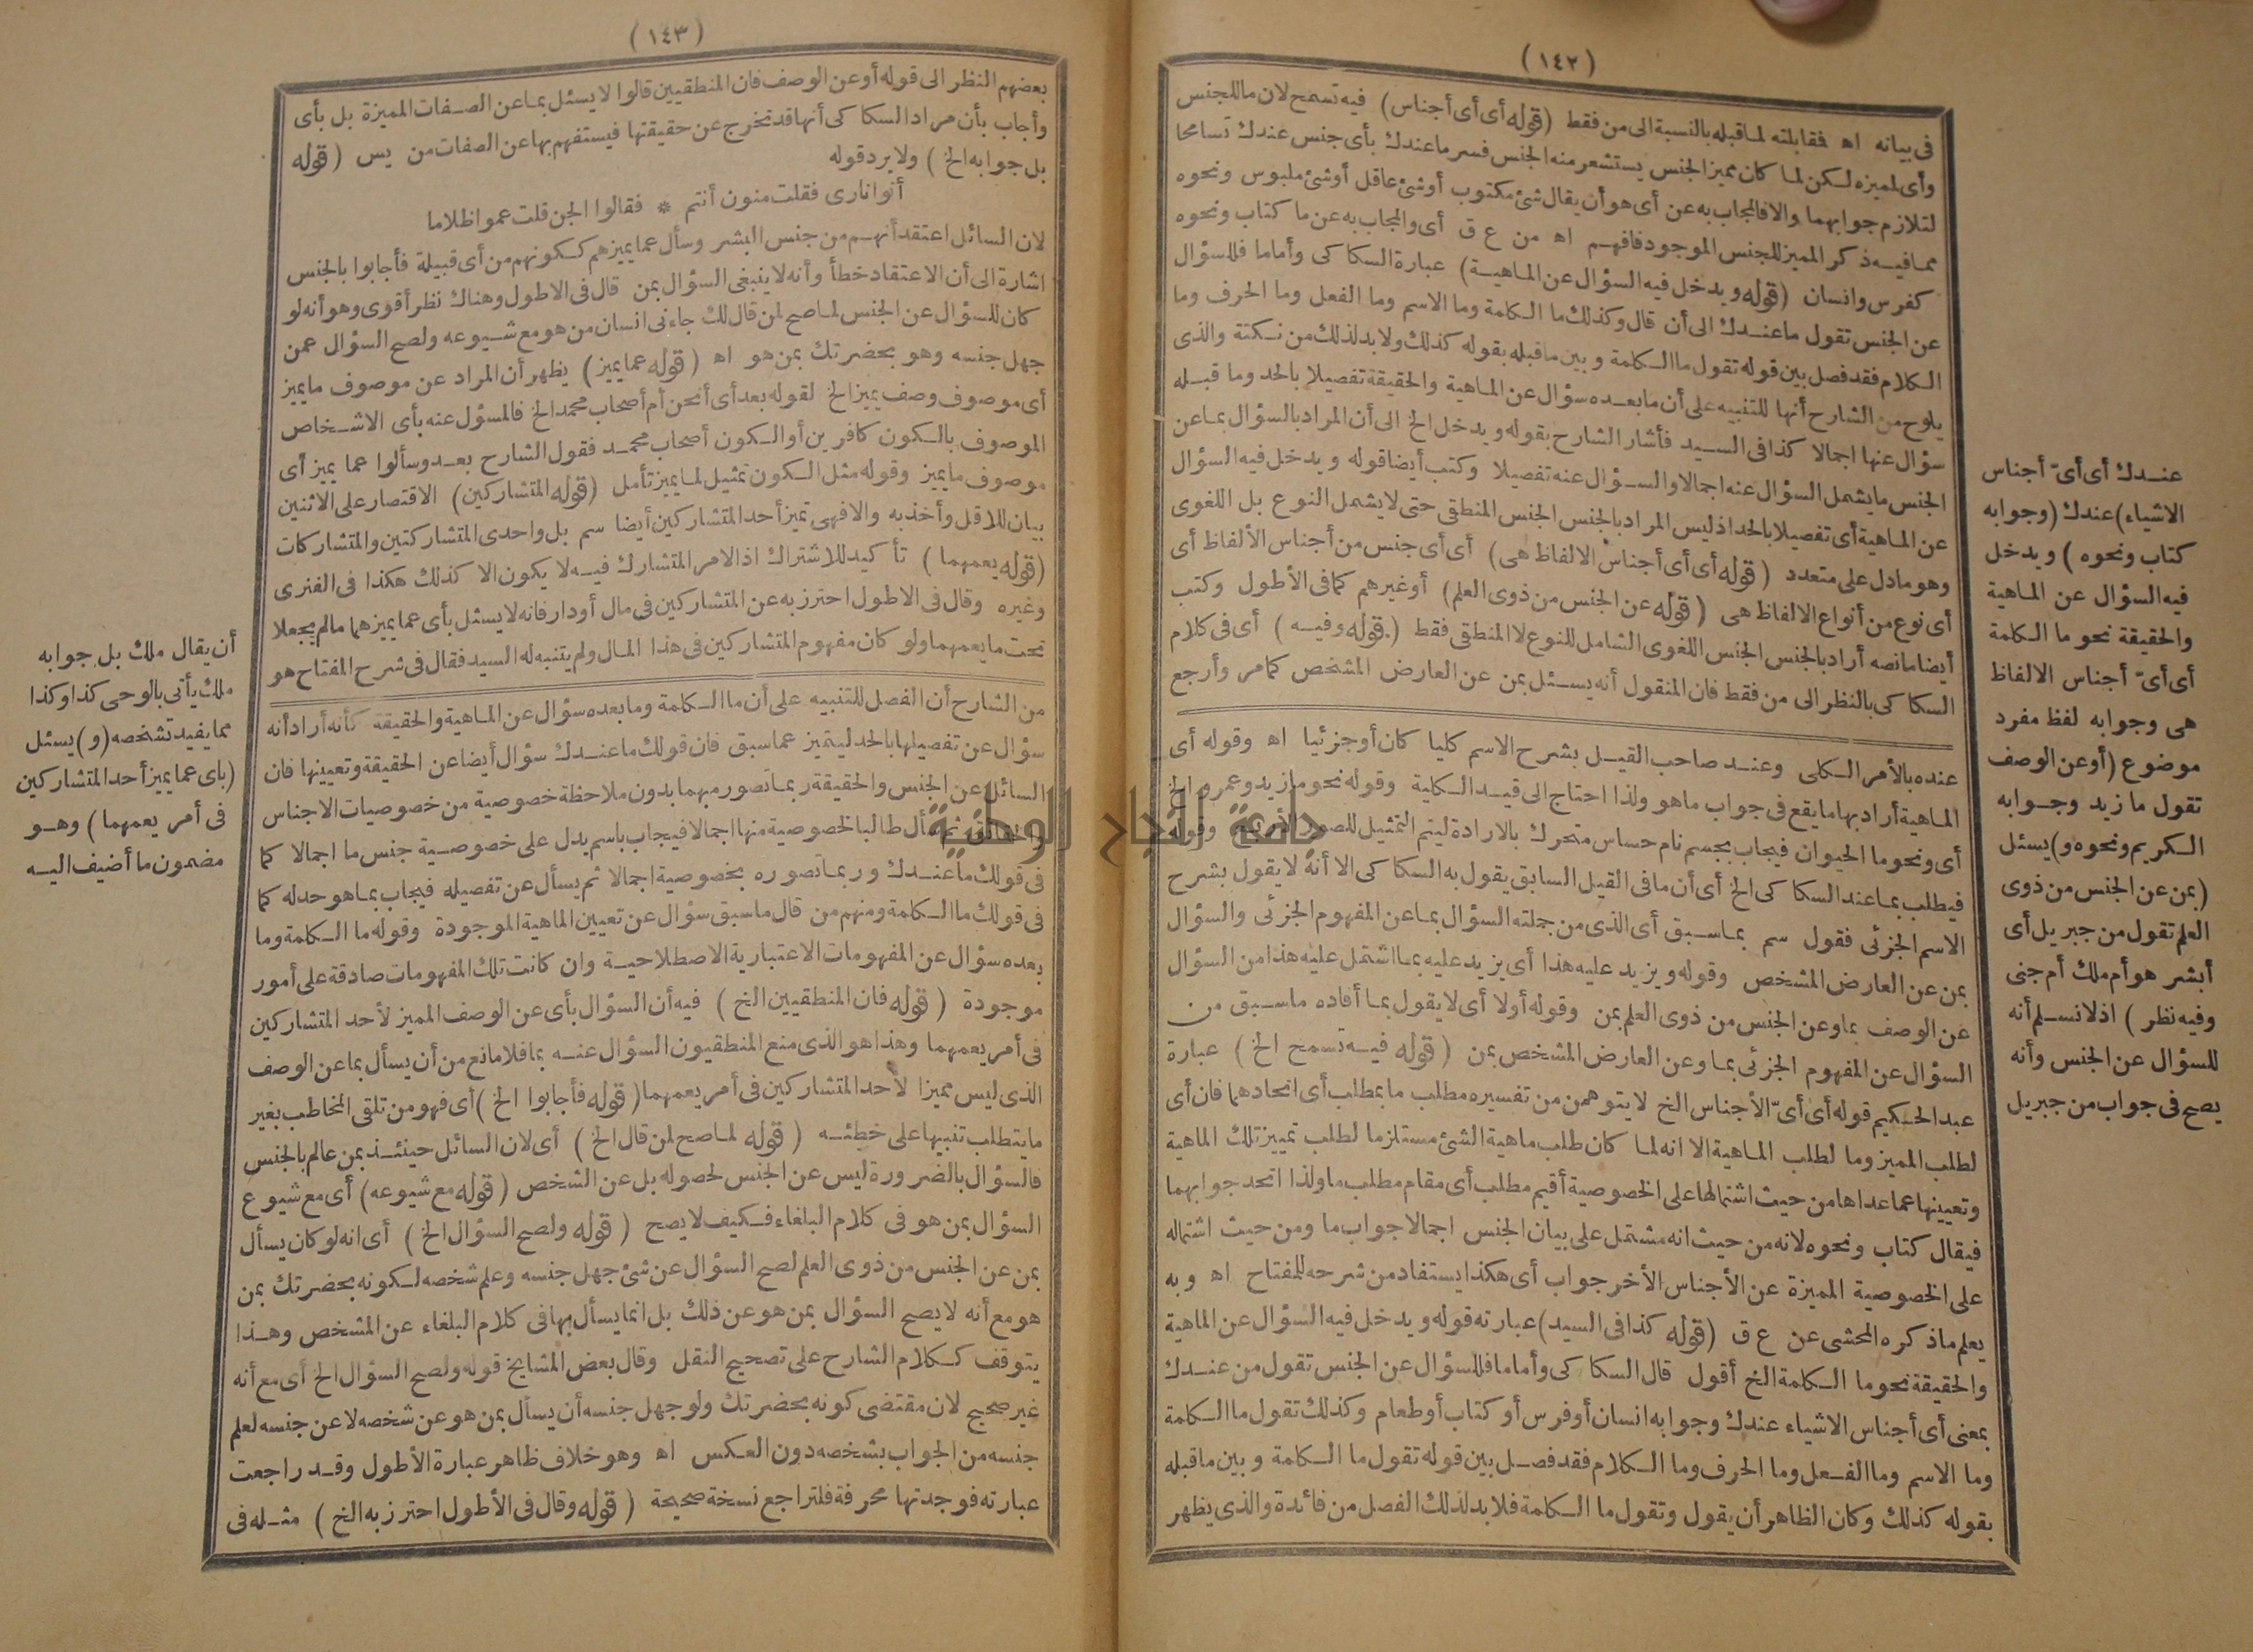 (١٤٢)
فى بيانه اه فقابلته لما قبله بالنسبة الى من فقط (قوله أى أى أجناس) فيه تسمح لان ما للجنس
وأى لمميزه لكن لما كان مميز الجنس يستشعر منه الجنس فسر ما عندك بأى جنس عندك تسامحا
لتلازم جوابهما والا فالمجاب به عن أى هو أن يقال شئ مكتوب أو شئ عاقل أو شئ ملبوس ونحوه
مما فيه ذكر المميز للجنس الموجود فافهم اه من ع ق أى والمجاب به عن ما كتاب ونحوه
كفرس وانسان (قوله ويدخل فيه السؤال عن الماهية) عبارة السكاكى وأما ما فللسؤال
عن الجنس تقول ما عندك الى أن قال وكذلك ما الكلمة وما الاسم وما الفعل وما الحرف وما
الكلام فقد فصل بين قوله تقول ما الكلمة وبين ما قبله بقوله كذلك ولابد لذلك من نكتة والذى
يلوح من الشارح أنها للتنبيه على أن ما بعده سؤال عن الماهية والحقيقة تفصيلا بالحد وما قبله
سؤال عنها اجمالا كذا فى السيد فأشار الشارح بقوله ويدخل الخ الى أن المراد بالسؤال بما عن
الجنس ما يشمل السؤال عنه اجمالا والسؤال عنه تفصيلا وكتب أيضا قوله ويدخل فيه السؤال
عن الماهية أى تفصيلا بالحد اذ ليس المراد بالجنس الجنس المنطقى حتى لا يشمل النوع بل اللغوى
وهو ما دل على متعدد (قوله أى أى أجناس الالفاظ هى) أى أى جنس من أجناس الألفاظ أى
أى نوع من أنواع الالفاظ هى (قوله عن الجنس من ذوى العلم) أو غيرهم كما فى الأطول وكتب
أيضا ما نصه أراد بالجنس الجنس اللغوى الشامل للنوع لا المنطقى فقط (قوله وفيه) أى فى كلام
السكاكى بالنظر الى من فقط فان المنقول أنه يسئل بمن عن العارض المشخص كما مر وأرجع
عنده بالأمر الكلى وعند صاحب القيل بشرح الاسم كليا كان أو جزئيا اه وقوله أى
الماهية أراد بها ما يقع فى جواب ما هو ولذا احتاج الى قيد الكلية وقوله نحو ما زيد وعمرو الخ
أى ونحو ما الحيوان فيجاب بجسم نام حساس متحرك بالارادة ليتم التمثيل للصور الأربع وقوله
فيطلب بما عند السكاكى الخ أى أن ما فى القيل السابق يقول به السكاكى الا أنه لا يقول بشرح
الاسم الجزئى فقول سم بما سبق أى الذى من جملته السؤال بما عن المفهوم الجزئى والسؤال
بمن عن العارض المشخص وقوله ويزيد عليه هذا أى يزيد عليه بما اشتمل عليه هذا من السؤال
عن الوصف بما وعن الجنس من ذوى العلم بمن وقوله أولا أى لا يقول بما أفاده ما سبق من
السؤال عن المفهوم الجزئى بما وعن العارض المشخص بمن (قوله فيه تسمح الخ) عبارة
عبد الحكيم قوله أى أىّ الأجناس الخ لا يتوهمن من تفسيره مطلب ما بمطلب أى اتحادهما فان أى
لطلب المميز وما لطلب الماهية الا انه لما كان طلب ماهية الشئ مستلزما لطلب تمييز تلك الماهية
وتعيينها عما عداها من حيث اشتمالها على الخصوصية أقيم مطلب أى مقام مطلب ما ولذا اتحد جوابهما
فيقال كتاب ونحوه لانه من حيث انه مشتمل على بيان الجنس اجمالا جواب ما ومن حيث اشتماله
على الخصوصية المميزة عن الأجناس الأخر جواب أى هكذا يستفاد من شرحه للمفتاح اه وبه
يعلم ما ذكره المحشى عن ع ق (قوله كذا فى السيد) عبارته قوله ويدخل فيه السؤال عن الماهية
والحقيقة نحو ما الكلمة الخ أقول قال السكاكى وأما ما فللسؤال عن الجنس تقول من عندك
بمعنى أى أجناس الاشياء عندك وجوابه انسان أو فرس أو كتاب أو طعام وكذلك تقول ما الكلمة
وما الاسم وما الفعل وما الحرف وما الكلام فقد فصل بين قوله تقول ما الكلمة وبين ما قبله
بقوله كذلك وكان الظاهر أن يقول وتقول ما الكلمة فلابد لذلك الفصل من فائدة والذى يظهر
عندك أى أىّ أجناس
الاشياء) عندك (وجوابه
كتاب ونحوه) ويدخل
فيه السؤال عن الماهية
والحقيقة نحو ما الكلمة
أى أىّ أجناس الالفاظ
هى وجوابه لفظ مفرد
موضوع (أو عن الوصف
تقول ما زيد وجوابه
الكريم ونحوه و) يسئل
(بمن عن الجنس من ذوى
العلم تقول من جبريل أى
أبشر هو أم ملك أم جنى
وفيه نظر) اذ لا نسلم أنه
للسؤال عن الجنس وأنه
يصح فى جواب من جبريل
(١٤٣)
بعضهم النظر الى قوله أو عن الوصف فان المنطقيين قالوا لا يسئل بما عن الصفات المميزة بل بأى
وأجاب بأن مراد السكاكى أنها قد تخرج عن حقيقتها فيستفهم بها عن الصفات من يس (قوله
بل جوابه الخ) ولا يرد قوله
أتوا نارى فقلت منون أنتم * فقالوا الجن قلت عموا ظلاما
لان السائل اعتقد أنهم من جنس البشر وسأل عما يميزهم ككونهم من أى قبيلة فأجابوا بالجنس
اشارة الى أن الاعتقاد خطأ وأنه لا ينبغى السؤال بمن قال فى الاطول وهناك نظر أقوى وهو أنه لو
كان للسؤال عن الجنس لما صح لمن قال لك جاءنى انسان من هو مع شيوعه ولصح السؤال عمن
جهل جنسه وهو بحضرتك بمن هو اه (قوله عما يميز) يظهر أن المراد عن موصوف ما يميز
أى موصوف وصف يميز الخ لقوله بعد أى أنحن أم أصحاب محمد الخ فالمسؤل عنه بأى الاشخاص
الموصوف بالكون كافرين أو الكون أصحاب محمد فقول الشارح بعد وسألوا عما يميز أى
موصوف ما يميز وقوله مثل الكون تمثيل لما يميز تأمل (قوله المتشاركين) الاقتصار على الاثنين
بيان للاقل وأخذ به والا فهى تميز أحد المتشاركين أيضا سم بل واحدى المتشاركتين والمتشاركات
(قوله يعمهما) تأكيد للاشتراك اذ الامر المتشارك فيه لا يكون الا كذلك هكذا فى الفنرى
وغيره وقال فى الاطول احترز به عن المتشاركين فى مال أو دار فانه لا يسئل بأى عما يميزهما ما لم يجعلا
تحت ما يعمهما ولو كان مفهوم المتشاركين فى هذا المال ولم يتنبه له السيد فقال فى شرح المفتاح هو
من الشارح أن الفصل للتنبيه على أن ما الكلمة وما بعده سؤال عن الماهية والحقيقة كأنه أراد أنه
سؤال عن تفصيلها بالحد ليتميز عما سبق فان قولك ما عندك سؤال أيضا عن الحقيقة وتعيينها فان
السائل عن الجنس والحقيقة ربما تصورهما بدون ملاحظة خصوصية من خصوصيات الاجناس
والحقائق ثم سأل طالبا لخصوصية منها اجمالا فيجاب باسم يدل على خصوصية جنس ما اجمالا كما
فى قولك ما عندك وربما تصوره بخصوصية اجمالا ثم يسأل عن تفصيله فيجاب بما هو حد له كما
فى قولك ما الكلمة ومنهم من قال ما سبق سؤال عن تعيين الماهية الموجودة وقوله ما الكلمة وما
بعده سؤال عن المفهومات الاعتبارية الاصطلاحية وان كانت تلك المفهومات صادقة على أمور
موجودة (قوله فان المنطقيين الخ) فيه أن السؤال بأى عن الوصف المميز لأحد المتشاركين
فى أمر يعمهما وهذا هو الذى منع المنطقيون السؤال عنه بما فلا مانع من أن يسأل بما عن الوصف
الذى ليس مميزا لأحد المتشاركين فى أمر يعمهما (قوله فأجابوا الخ) أى فهو من تلقى المخاطب بغير
ما يتطلب تنبيها على خطئه (قوله لما صح لمن قال الخ) أى لان السائل حينئذ بمن عالم بالجنس
فالسؤال بالضرورة ليس عن الجنس لحصوله بل عن الشخص (قوله مع شيوعه) أى مع شيوع
السؤال بمن هو فى كلام البلغاء فكيف لا يصح (قوله ولصح السؤال الخ) أى انه لو كان يسأل
بمن عن الجنس من ذوى العلم لصح السؤال عن شئ جهل جنسه وعلم شخصه لكونه بحضرتك بمن
هو مع أنه لا يصح السؤال بمن هو عن ذلك بل انما يسأل بها فى كلام البلغاء عن المشخص وهذا
يتوقف ككلام الشارح على تصحيح النقل وقال بعض المشايخ قوله ولصح السؤال الخ أى مع أنه
غير صحيح لان مقتضى كونه بحضرتك ولو جهل جنسه أن يسأل بمن هو عن شخصه لا عن جنسه لعلم
جنسه من الجواب بشخصه دون العكس اه وهو خلاف ظاهر عبارة الأطول وقد راجعت
عبارته فوجدتها محرفة فلتراجع نسخة صحيحة (قوله وقال فى الأطول احترز به الخ) مثله فى
أن يقال ملك بل جوابه
ملك يأتى بالوحى كذا وكذا
مما يفيد تشخصه (و) يسئل
(باى عما يميز أحد المتشاركين
فى أمر يعمهما) وهو
مضمون ما أضيف اليه
جامعة النجاح الوطنية